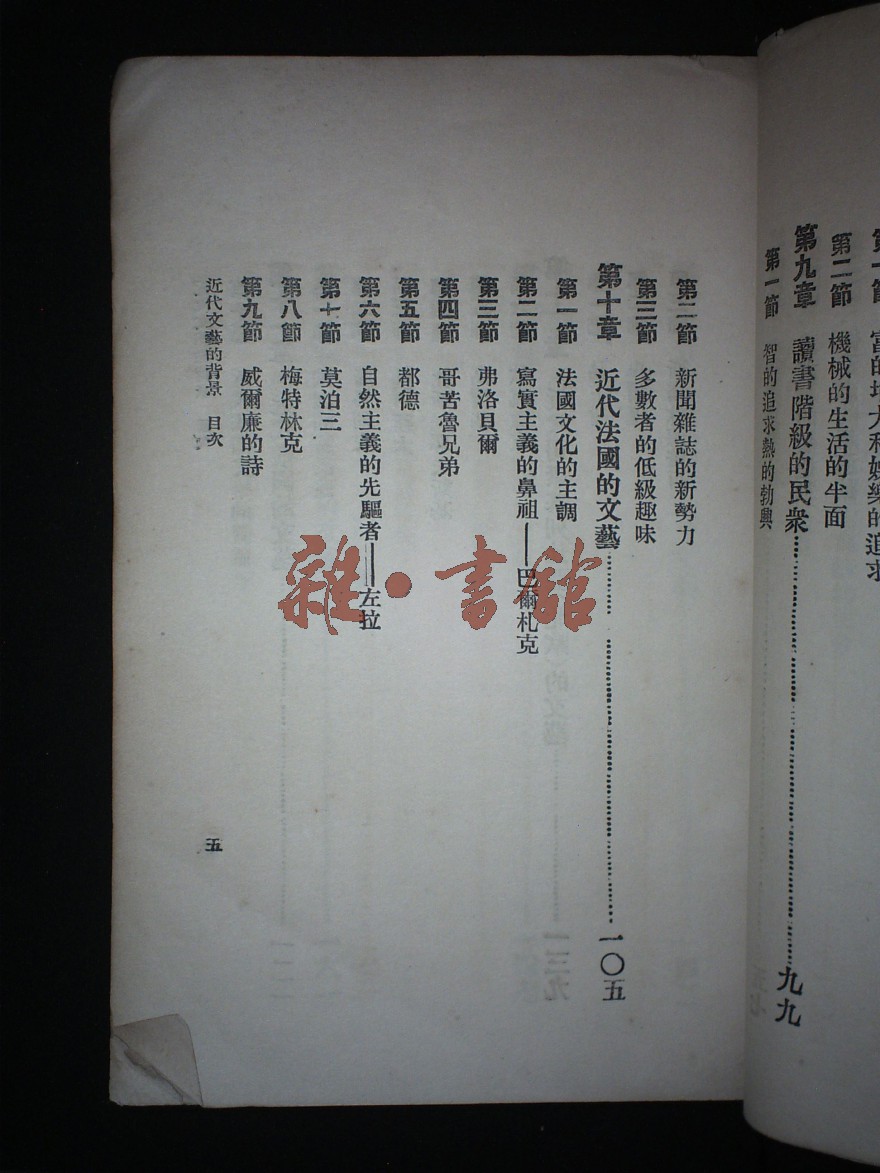 第一節 富的增大和娛樂的追求
第二節 機械的生活的半面
第九章 讀書階級的民衆……九九
第一節 智的追求熱的勃興
第二節 新聞雜誌的新勢力
第三節 多數者的低級趣味
第十章 近代法國的文藝……一〇五
第一節 法國文化的主調
第二節 寫實主義的鼻祖——巴爾札克
第三節 弗洛貝爾
第四節 哥苦魯兄弟
第五節 都德
第六節 自然主義的先驅者——左拉
第七節 莫泊三
第八節 梅特林克
第九節 威爾廉的詩
近代文藝的背景 目次
五
雜·書館